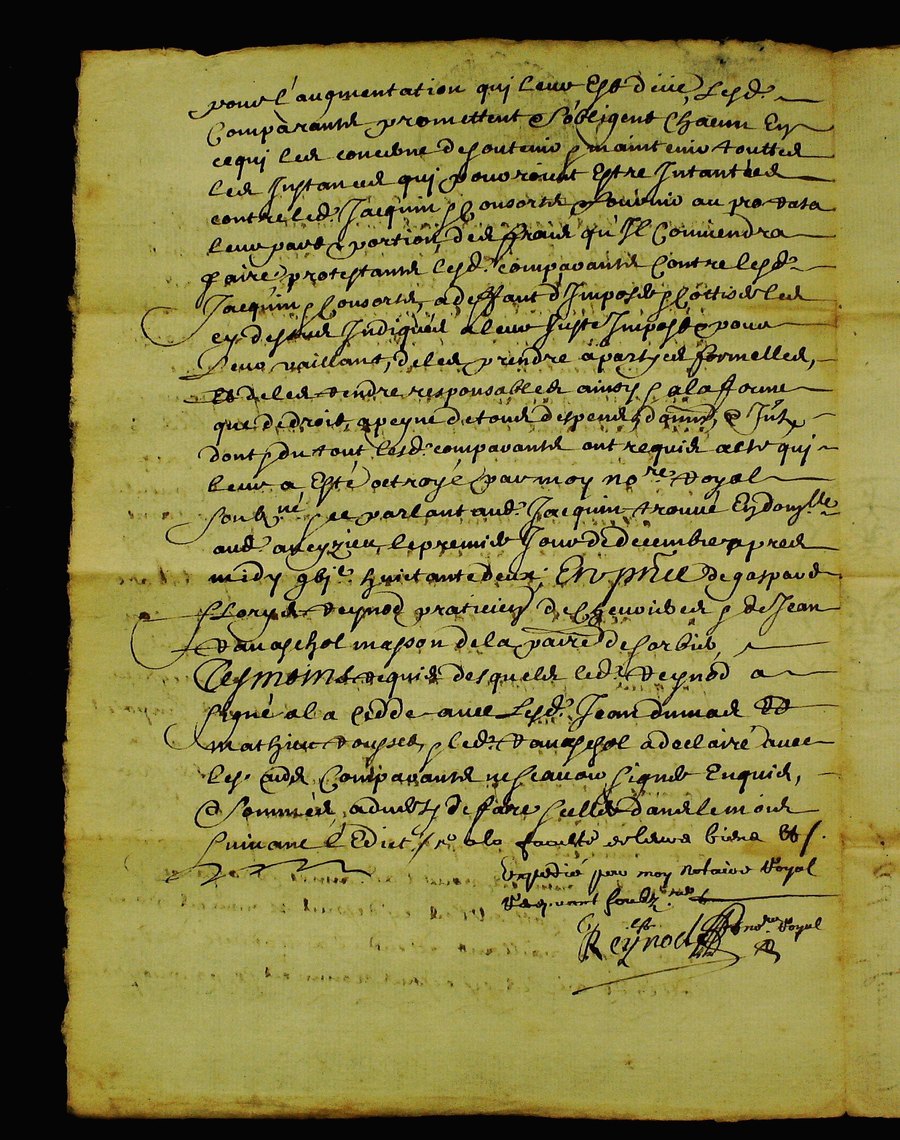 pour l'augmentation qui leur Est deüe, Lesd.
Comparants promettent & sobligent Chacun En
cequi les concerne desoutenir & maintenir touttes
les Instances qui pourroint Estre Intantées
contre led. Jacquin & Consorts & fournir au pro rata
leur part & portion, des ffrais qu'Il Conviendra
faire, protestants lesd. comparants Contre lesd.
Jacquin & Consorts, adeffaut d'Imposer & Cottiser les
cy dessus Indiqués aleur Juste Imposte pour
leur vaillant, deles prendre apartyes formelles,
Et deles rendre responsables ainsy & ala fforme
que dedroit, apeyne detous despens, domm. & Int.
dont & du tout lesd. comparants ont requis acte qui
leur a Esté octroyé par moy no.re Royal
soub.né & ce parlant aud. Jacquin trouvé En dom.lle
aud. aveyzieu, lepremier Jour dedecembre apres
midy gbj.c huictantedeux, En p̃nce de gaspard
fflory Reynod praticien de & de Jean
Ravaschol masson dela par.e desorbier,
Tesmoins requis desquels led. Reynod a
signé ala cedde avec Lesd. Jean dumas Et
mathieu rousset, & led. Ravaschol adeclairé avec
les aud. Comparants ne scavoir signer Enquis,
& sommés, advertis defaire sceller dans lemois
suivant l'Edict, ala faculté deleurs biens Et /.
Expedié par moy notaire Royal
recevant soubz.né
Reynod no.re Royal